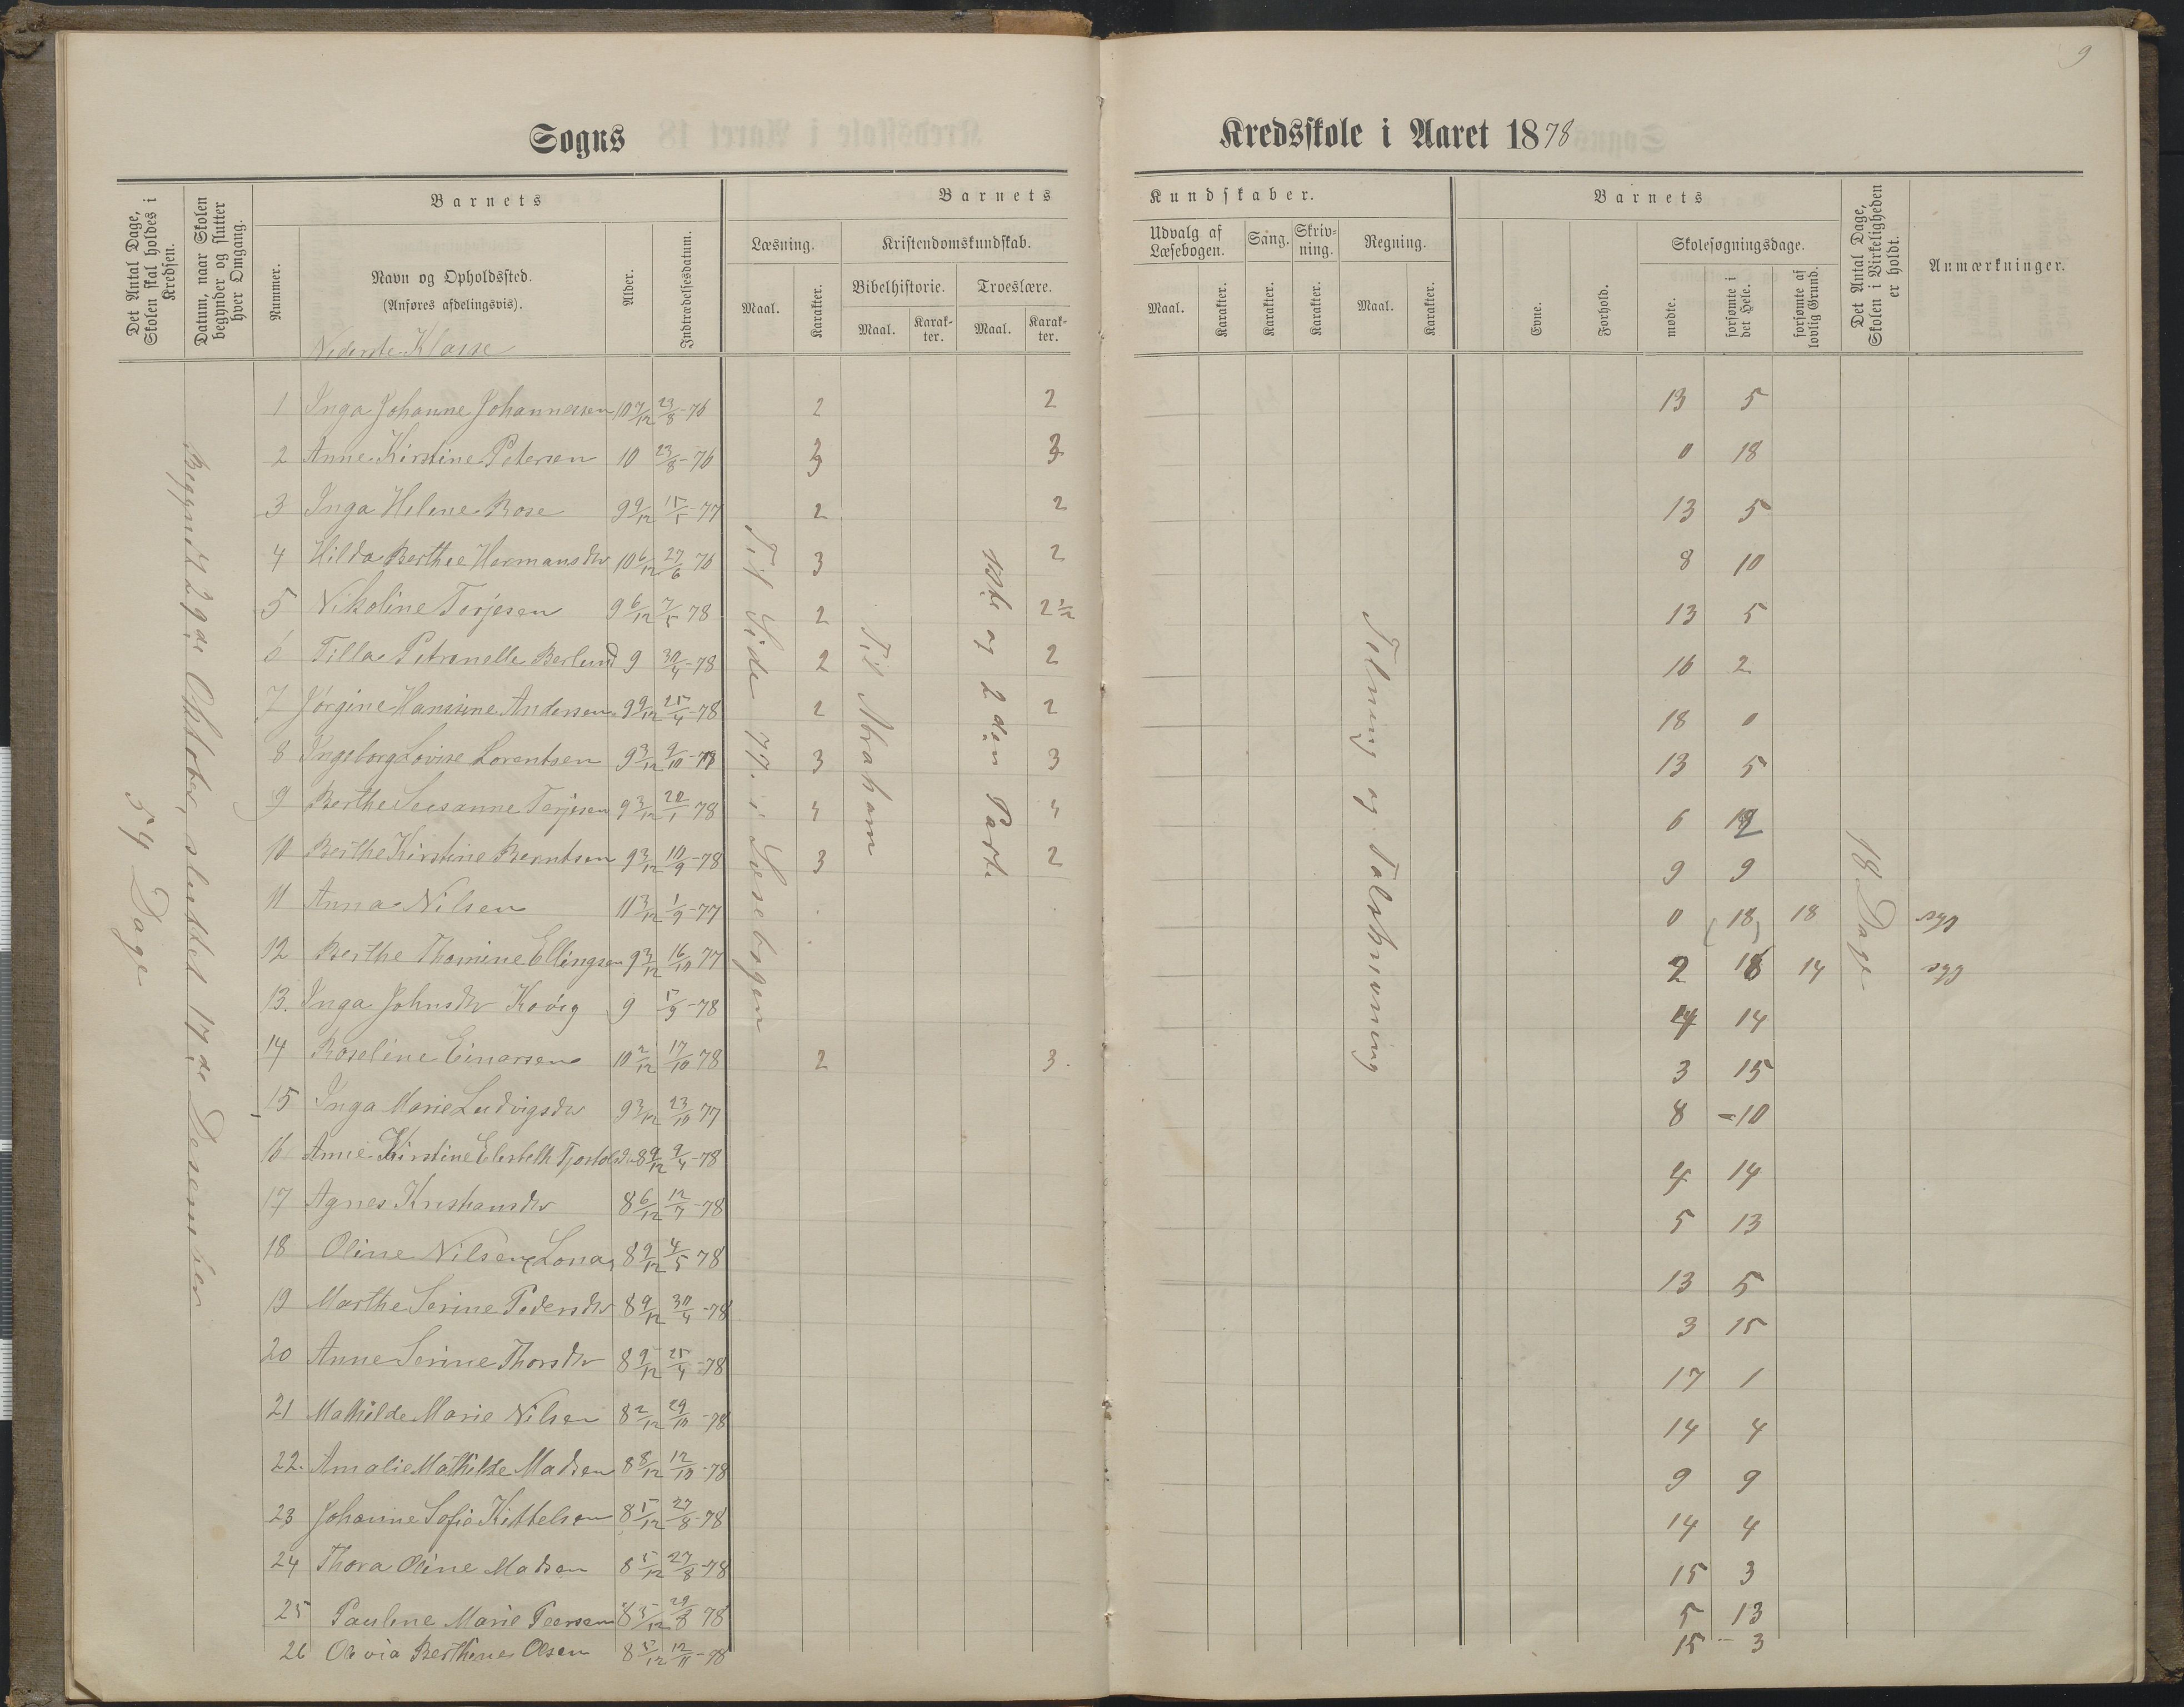 9
Sogns
Kredsskole i Aaret 1878
Det Antal Dage, Skolen skal holdes i Kredsen.
Datum, naar Skolen begynder og slutter hver Omgang.
Barnets
Nummer.
Navn og Opholdssted.
(Anføres afdelingsvis).
Nederste Klasse
Alder.
Indtrædelsesdatum.
Barnets
Læsning.
Maal.
Karakter.
Kristendomskundskab.
Bibelhistorie.
Maal.
Karakter.
Troeslære.
Maal.
Karakter.
Kundskaber.
Udvalg af Læsebogen.
Maal.
Karakter.
Sang.
Karakter.
Skrivning.
Karakter.
Regning.
Maal.
Karakter.
Barnets
Evne.
Forhold.
Skolesøgningsdage.
mødte.
forsømte i det Hele.
forsømte af lovlig Grund.
Det Antal Dage, Skolen i Virkeligheden er holdt.
Anmærkninger.
54 Dage
Begyndt 29de Oktober, sluttet 17de Desember
Til Side 77. i Læsebogen
Til Abraham
1ste og 2den Part
Telning og Talskrivning
18 Dage
1 Inga Johanne Johannessen 10 7/12 23/8-76 2 2 13 5
2 Anne Kirstine Petersen 10 23/8-76 3 3 0 18
3 Inga Helene Bose 9 9/12 15/5-77 2 2 13 5
4 Hilda Berthee Hermansdtr 10 6/12 27/6 76 3 2 8 10
5 Nikoline Torjesen 9 6/12 7/5 78 2 2 1/2 13 5
6 Tilla Petronelle Berlund 9 30/4-78 2 2 16 2
7 Jørgine Hansine Andersen 9 9/12 25/4-78 2 2 18 0
8 Ingeborg Lovise Lorentsen 9 3/12 9/10-78 3 3 13 5
9 Berthe Susanne Terjesen 9 3/12 20/1 78 4 4 6 12
10 Berthe Kirstine Berntsen 9 3/12 10/9-78 3 2 9 9
11 Anna Nilsen 11 3/12 1/9-77 0 18 18 syg
12 Berthe Thomine Ellingsen 9 3/12 16/10 77 2 16 14 syg
13. Inga Johnsdtr Kovig 9 5/9-78 4 14
14 Roseline Einarsen 10 2/12 17/10 78 2 3. 3 15
15 Inga Marie Ludvigsdtr 9 3/12 23/10 77 8 -10
16 Anne Kirstine Elisbeth 8 9/12 9/4-78 4 14
17 Agnes Kristiansdtr 8 6/12 12/7-78 5 13
18 Oline Nilsen, Lona, 8 9/12 4/5 78 13 5
19 Marthe Serine Pedersdtr 8 9/12 30/4-78 3 15
20 Anne Serine Thorsdtr 8 9/12 25/4-78 17 1
21 Mathilde Marie Nilsen 8 2/12 29/10-78 14 4
22. Amalie Mathilde Madsen 8 8/12 12/10-78 9 9
23 Johanne Sofie Kittelsen 8 5/12 27/8-78 14 4
24 Thora Oline Madsen 8 5/12 27/8-78 15 3
25 Pauline Marie Peersen 8 5/12 29/8 78 5 13
26 Olevia Berthine Olsen 8 5/12 12/11-78 15 - 3